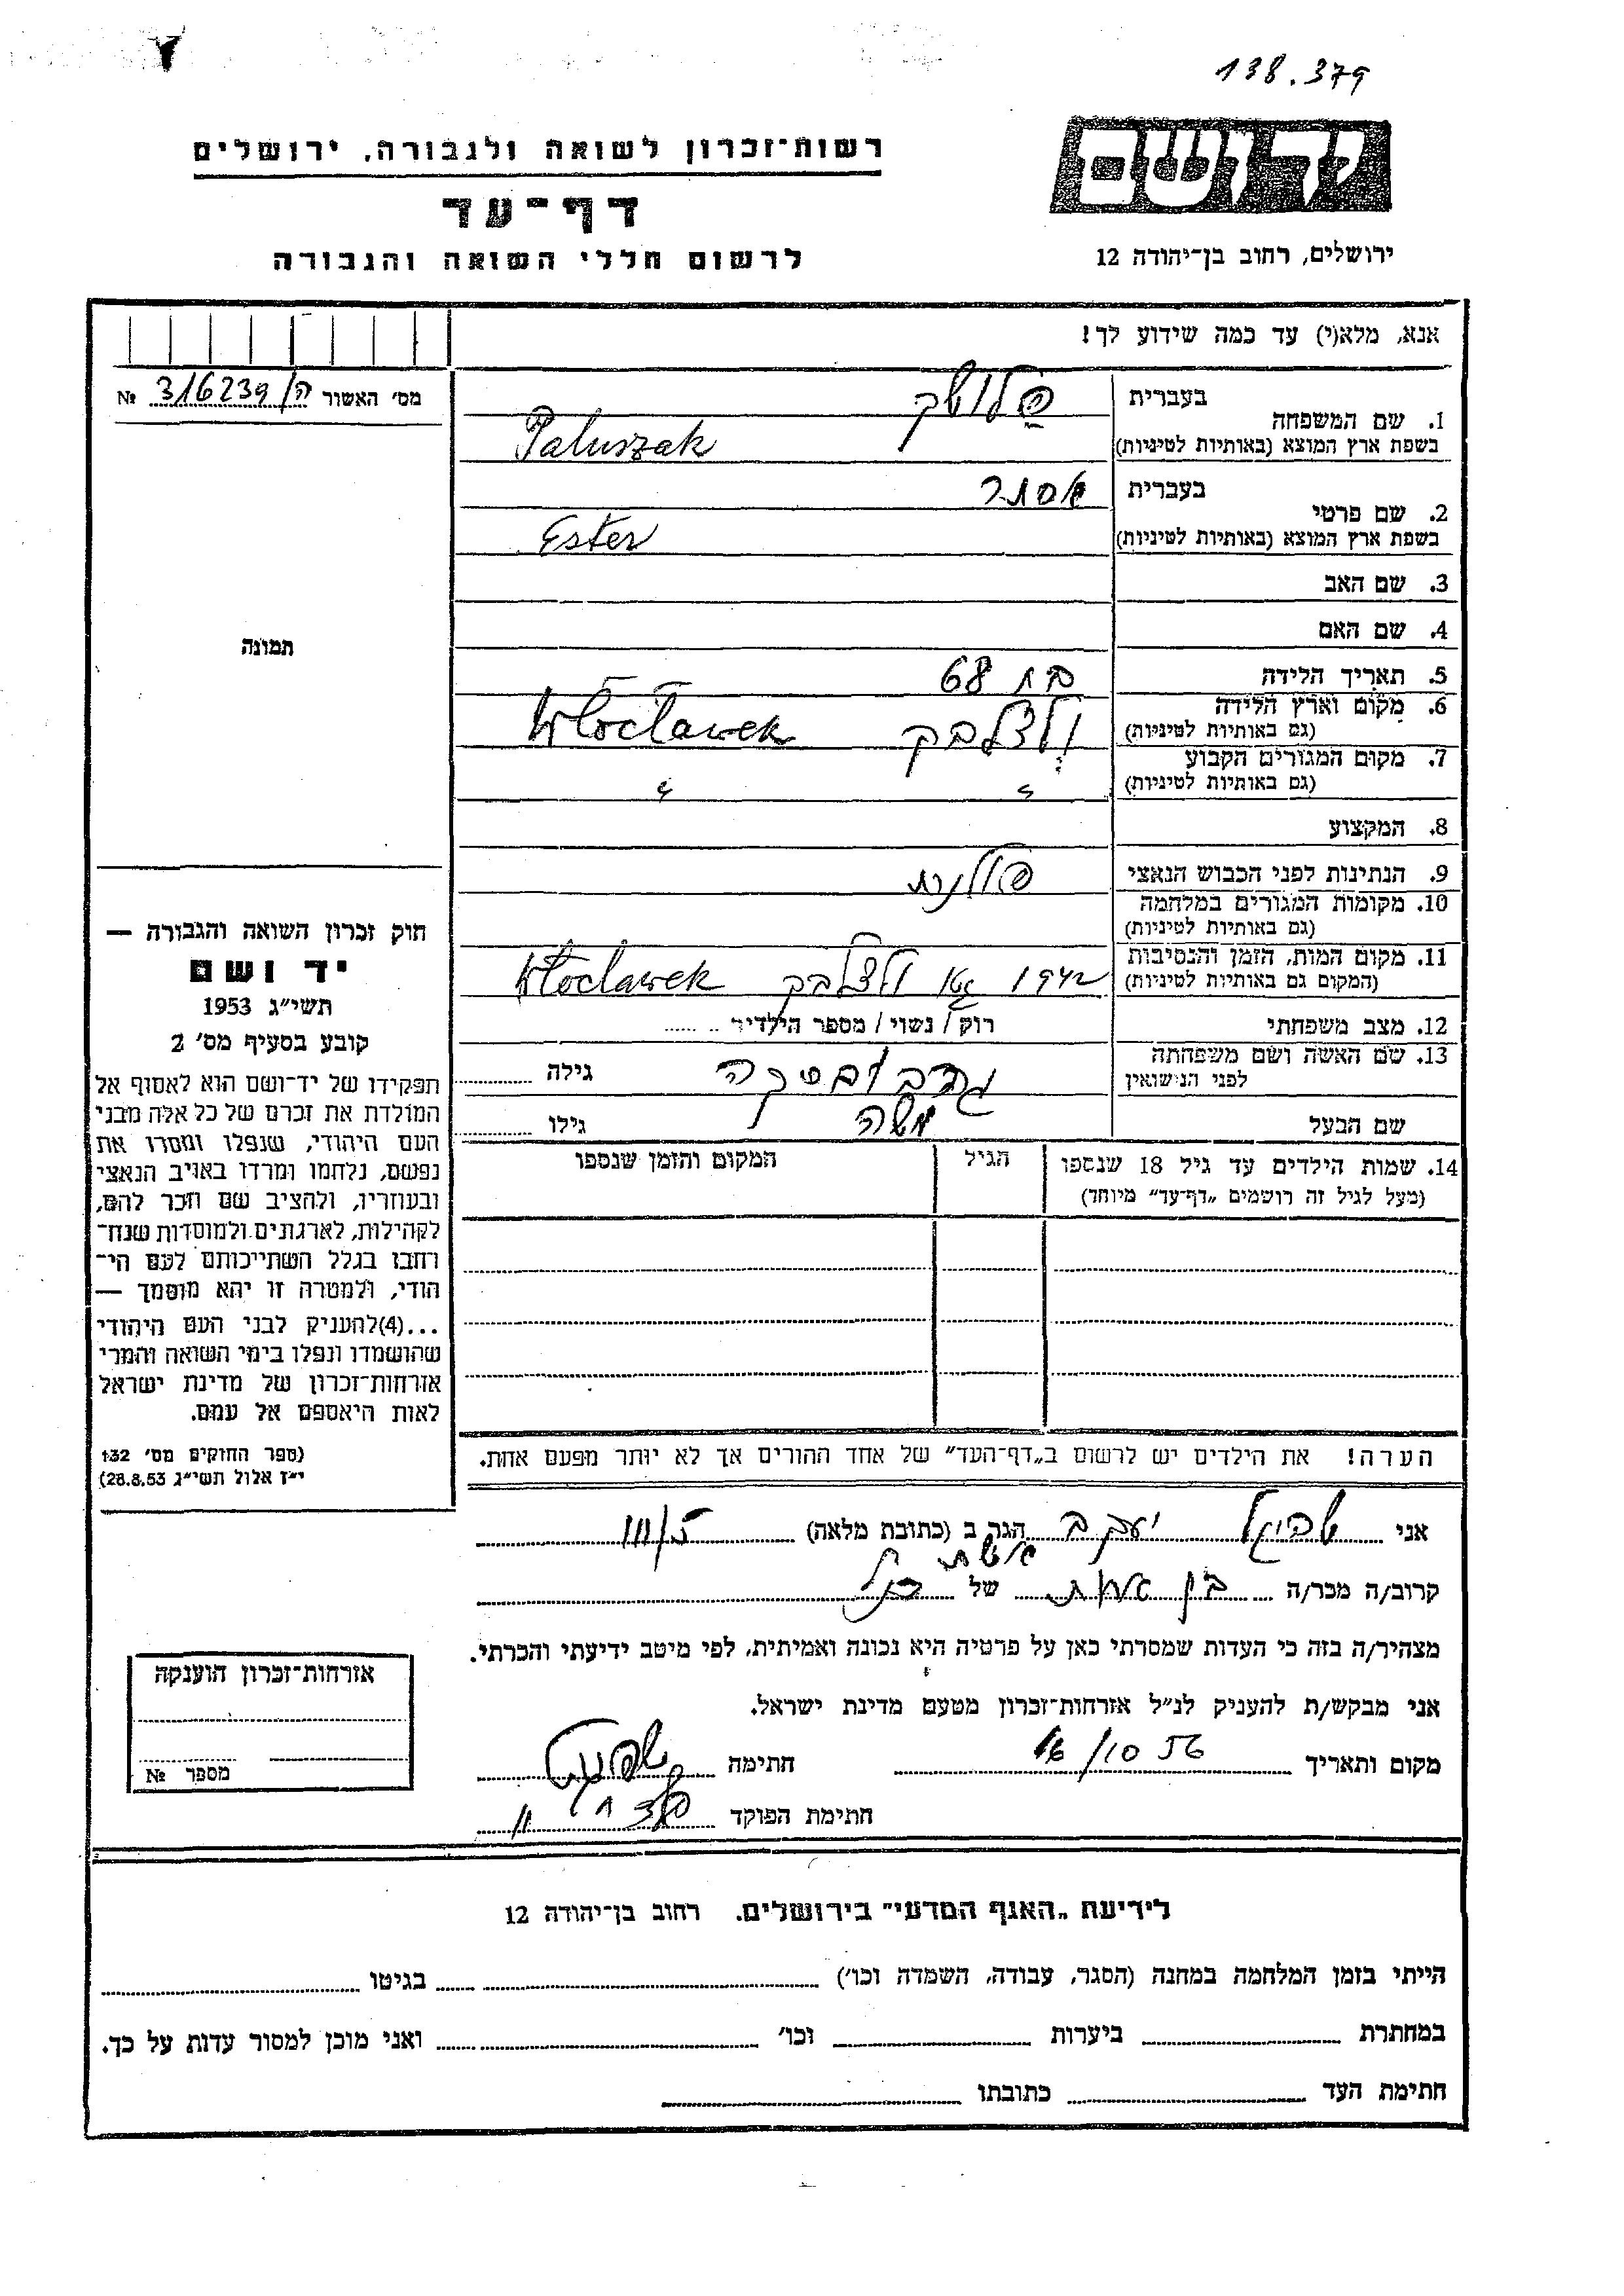 138.379
יד ושם
ירושלים, רחוב בן־יהודה 12
רשות־זכרון לשואה ולגבורה, ירושלים
דף־עד
לרשום חללי השואה והגבורה
אנא, מלא(י) עד כמה שידוע לך!
מס׳ האשור ה/316239 №
תמונה
1. שם המשפחה בעברית פלושק
בשפת ארץ המוצא (באותיות לטיניות) Paluszak
2. שם פרטי בעברית אסתר
בשפת ארץ המוצא (באותיות לטיניות) Ester
3. שם האב
4. שם האם
5. תאריך הלידה בת 68
6. מקום וארץ הלידה
(גם באותיות לטיניות) ולצלבק Włocławek
7. מקום המגורים הקבוע
(גם באותיות לטיניות)
8. המקצוע
9. הנתינות לפני הכבוש הנאצי פולנית
10. מקומות המגורים במלחמה
(גם באותיות לטיניות)
11. מקום המות, הזמן והנסיבות
(המקום גם באותיות לטיניות) 1942 גטו ולצלבק Włocławek
12. מצב משפחתי רוק / נשוי / מספר הילדים
13. שם האשה ושם משפחתה
לפני הנישואין גילה
שם הבעל משה גילו
14. שמות הילדים עד גיל 18 שנספו הגיל המקום והזמן שנספו
(מעל לגיל זה רושמים „דף־עד” מיוחד)
הערה! את הילדים יש לרשום ב„דף־העד” של אחד ההורים אך לא יותר מפעם אחת.
חוק זכרון השואה והגבורה —
יד ושם
תשי״ג 1953
קובע בסעיף מס׳ 2
תפקידו של יד־ושם הוא לאסוף אל
המולדת את זכרם של כל אלה מבני
העם היהודי, שנפלו ומסרו את
נפשם, נלחמו ומרדו באויב הנאצי
ובעוזריו, ולהציב שם וזכר להם,
לקהילות, לארגונים ולמוסדות שנח־
רבו בגלל השתייכותם לעם הי־
הודי, ולמטרה זו יהא מוסמך —
...(4)להעניק לבני העם היהודי
שהושמדו ונפלו בימי השואה והמרי
אזרחות־זכרון של מדינת ישראל
לאות היאספם אל עמם.
(ספר החוקים מס׳ 132
י״ז אלול תשי״ג 28.8.53)
אני יעקב הגר ב (כתובת מלאה)
קרוב/ה מכר/ה בן אחות של
מצהיר/ה בזה כי העדות שמסרתי כאן על פרטיה היא נכונה ואמיתית, לפי מיטב ידיעתי והכרתי.
אני מבקש/ת להעניק לנ״ל אזרחות־זכרון מטעם מדינת ישראל.
מקום ותאריך 16/10 56 חתימה
חתימת הפוקד
אזרחות־זכרון הוענקה
מספר №
לידיעת „האגף המדעי” בירושלים. רחוב בן־יהודה 12
הייתי בזמן המלחמה במחנה (הסגר, עבודה, השמדה וכו׳) בגיטו
במחתרת ביערות וכו׳ ואני מוכן למסור עדות על כך.
חתימת העד כתובתו